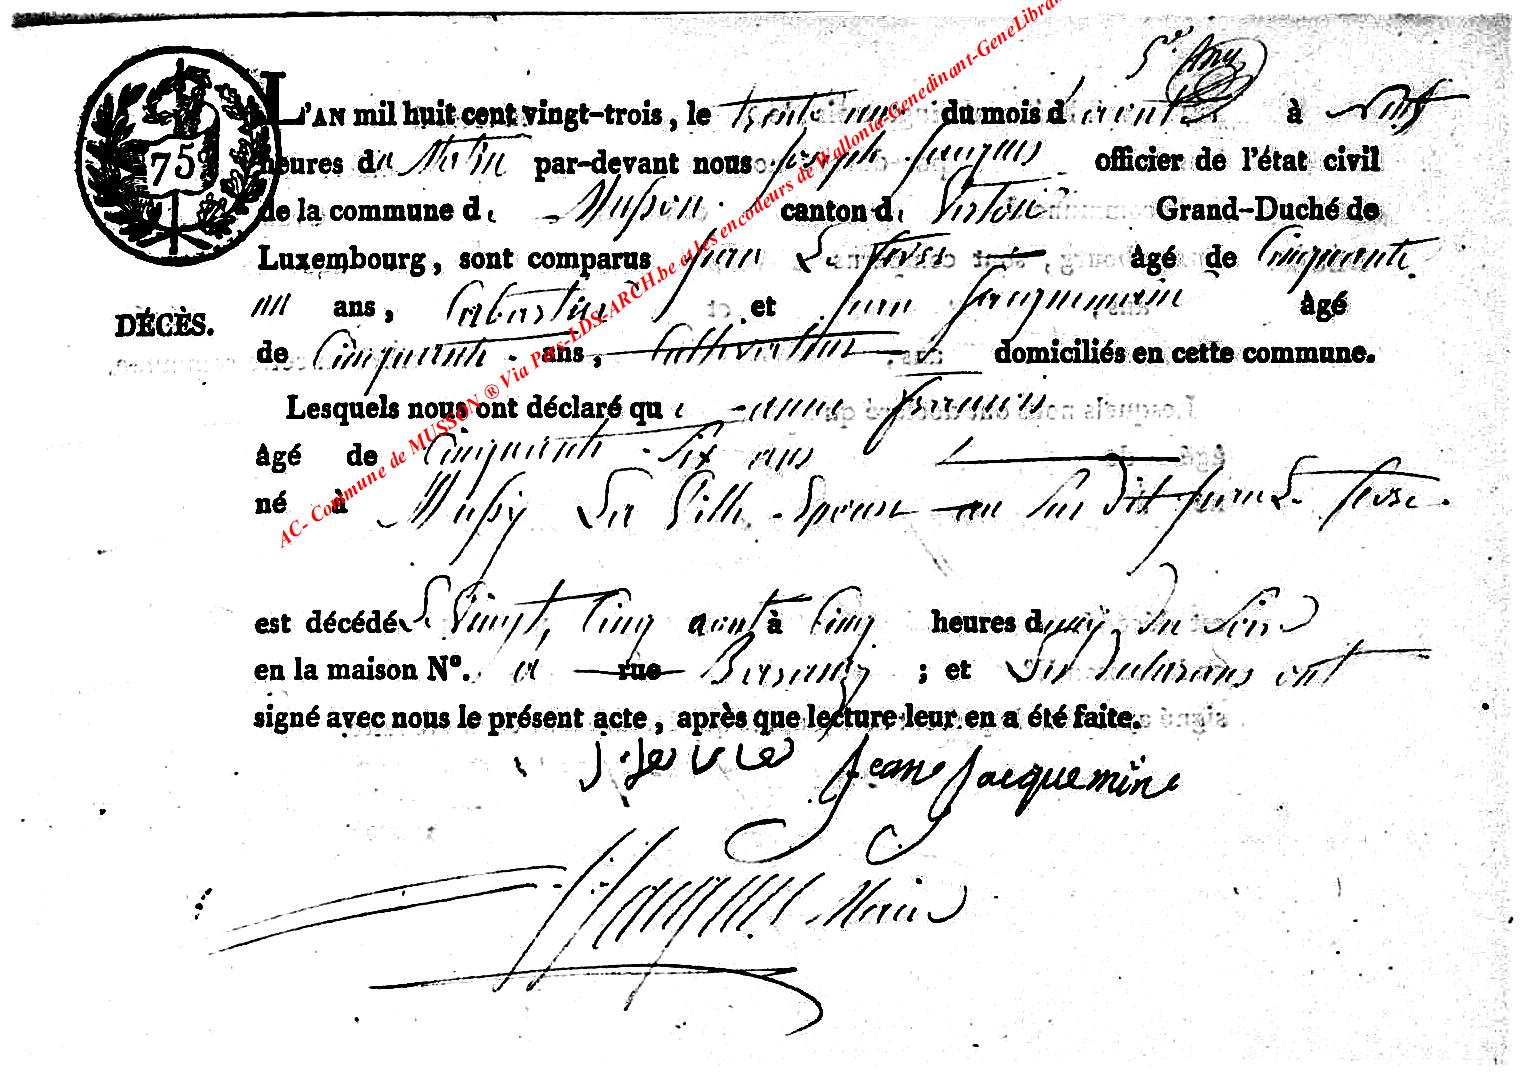 75
L'AN mil huit cent vingt-trois, le trente un du mois d'aout à neuf
heures du Matin par-devant nous Joseph Jacques officier de l'état civil
de la commune de Musson canton de Virton Grand-Duché de
Luxembourg, sont comparus Jean Le fevre âgé de Cinquante
un ans, Cabartier et Jean Jacquemain âgé
DÉCÈS.
de Cinquante ans, Cultivateur domiciliés en cette commune.
Lesquels nous ont déclaré que anne francois
âgé de Cinquante Six ans
né à Mussy La Ville Epouse au Sus dit Jean Le fevre.
est décédé Le Vingt Cinq aout à Cinq heures du Soir
en la maison N°. a rue Baranzy ; et Les declarans ont
signé avec nous le présent acte, après que lecture leur en a été faite.
Jean Jacquemin
J. Jacques Maire
AC- Commune de MUSSON ® Via Pros-LDS-ARCH.be et les encodeurs de Wallonia-Genedinant-GeneLibra